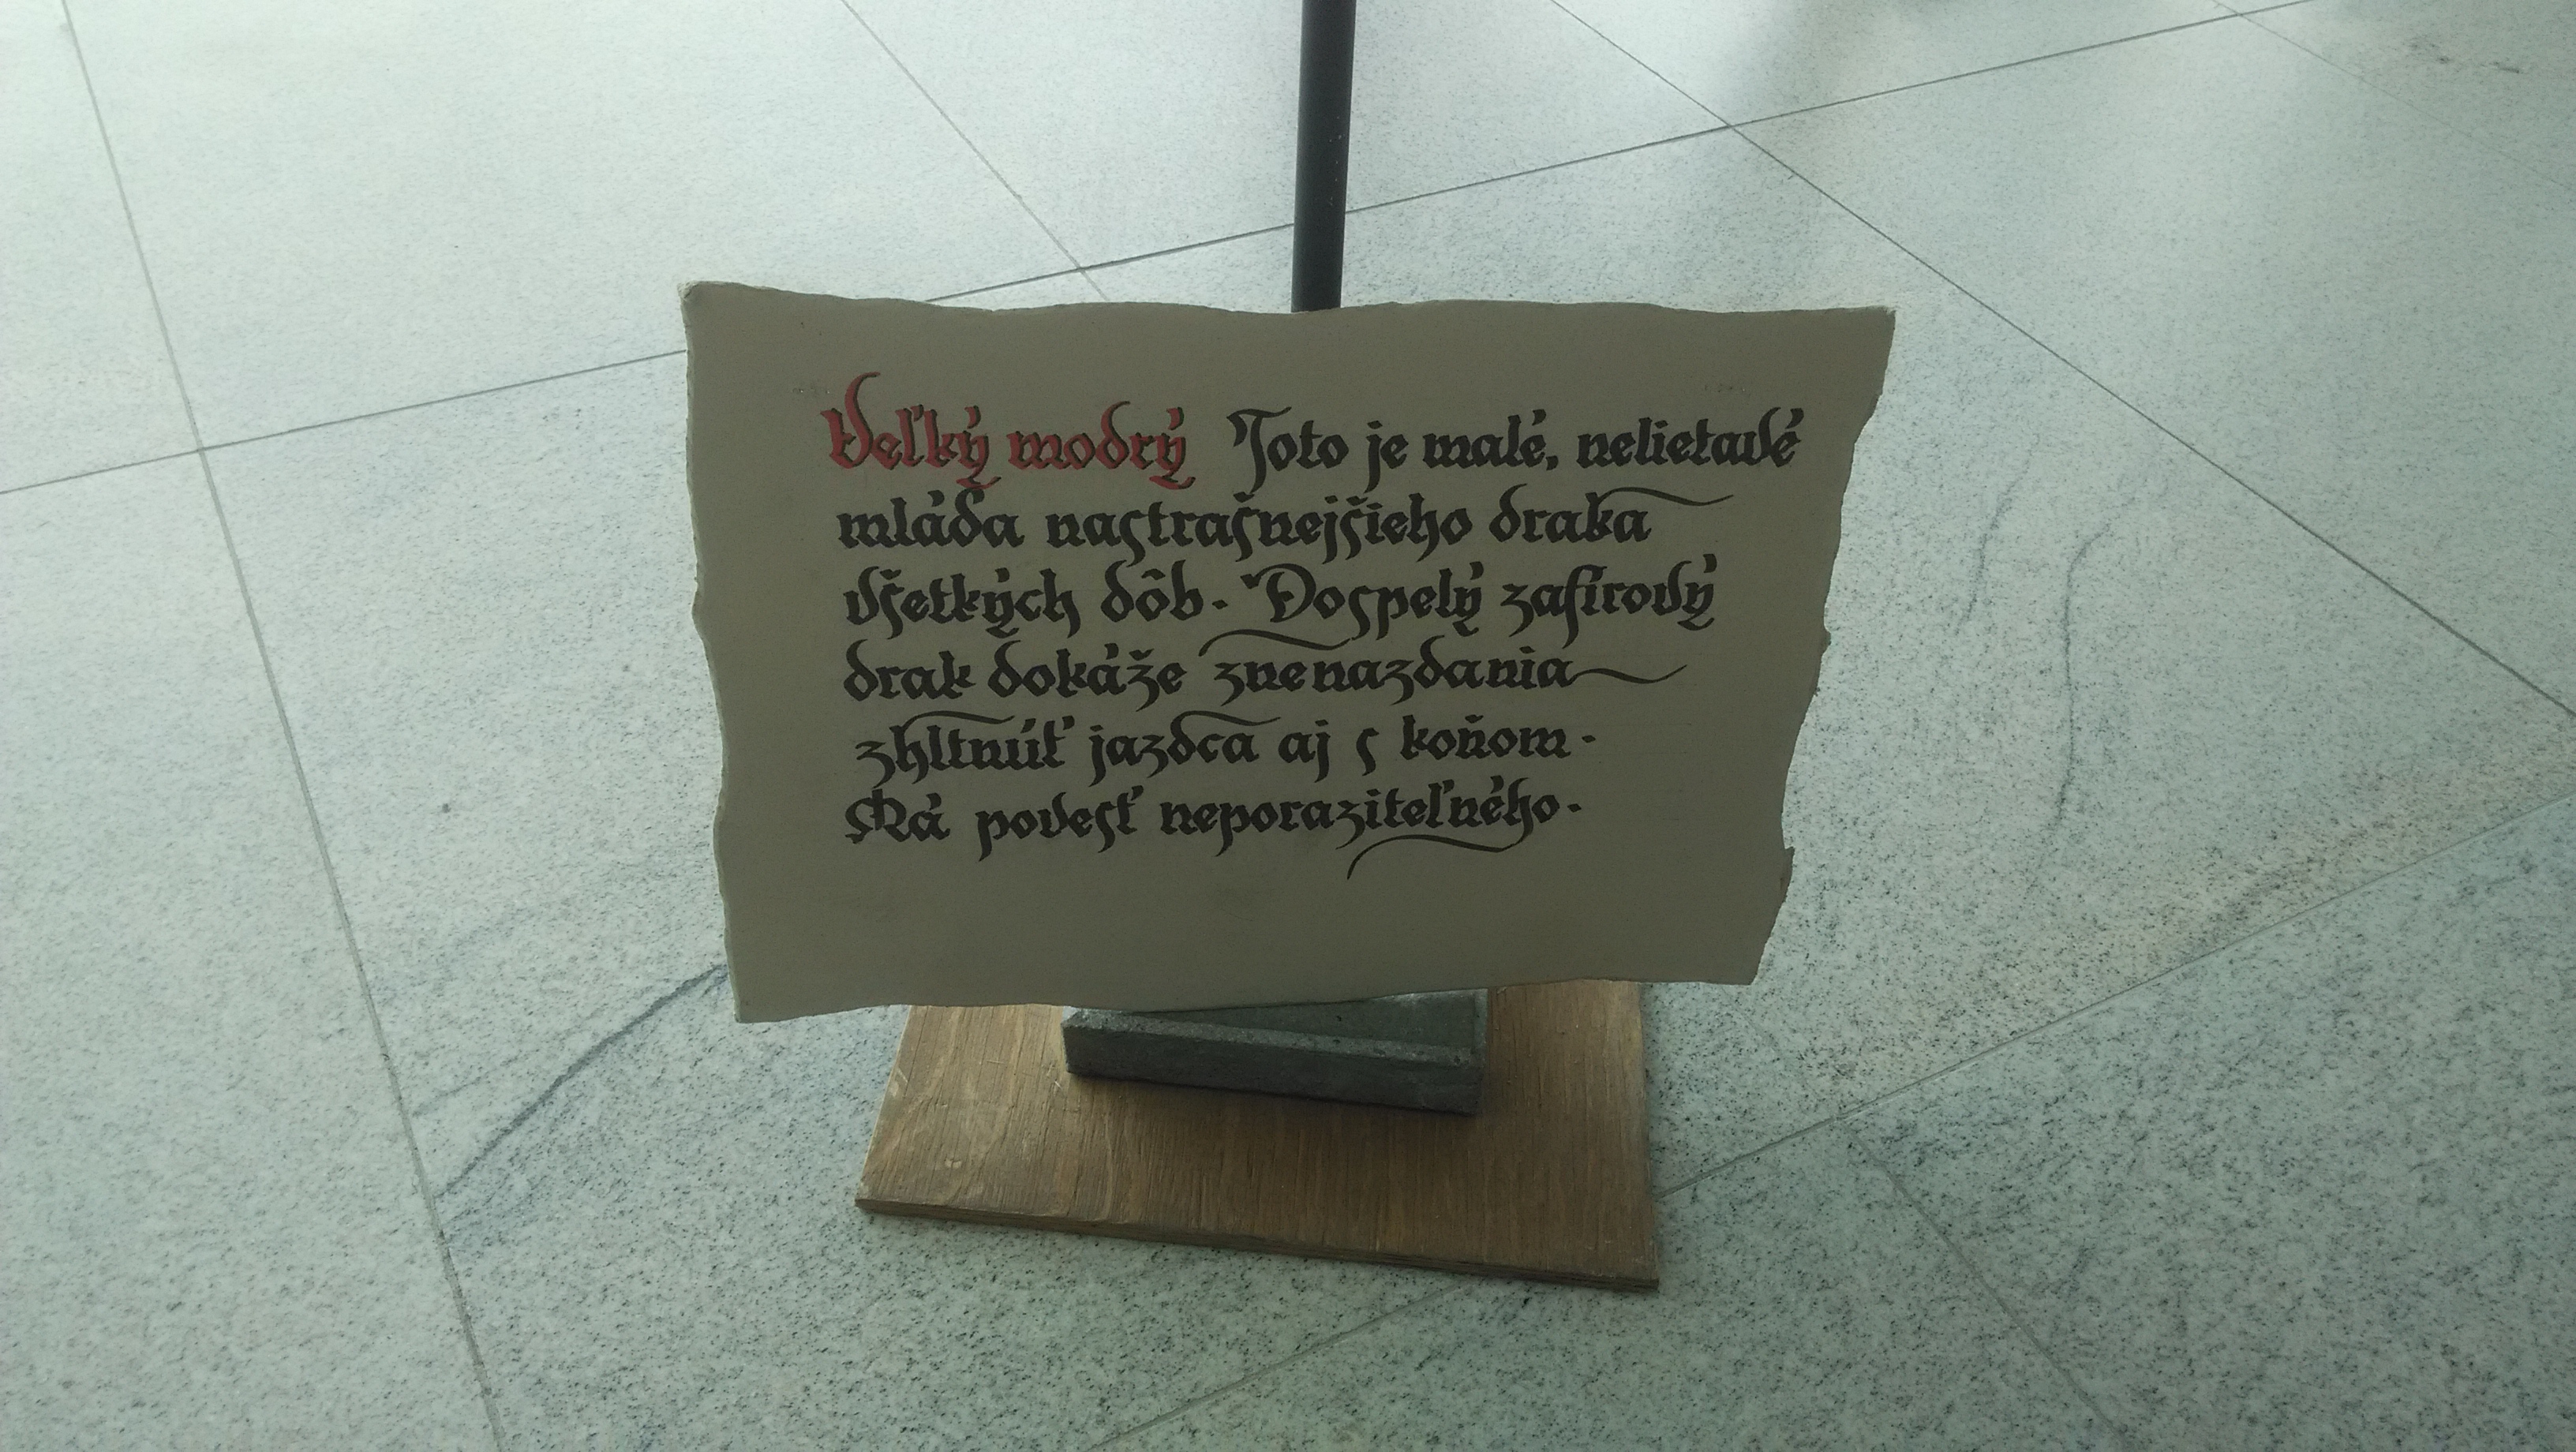 Veľký modrý Toto je malé, nelietavé
mláďa nastrašnejšieho draka
všetkých dôb. Dospelý zafírový
drak dokáže znenazdania
zhltnúť jazdca aj s koňom.
Má povesť neporaziteľného.